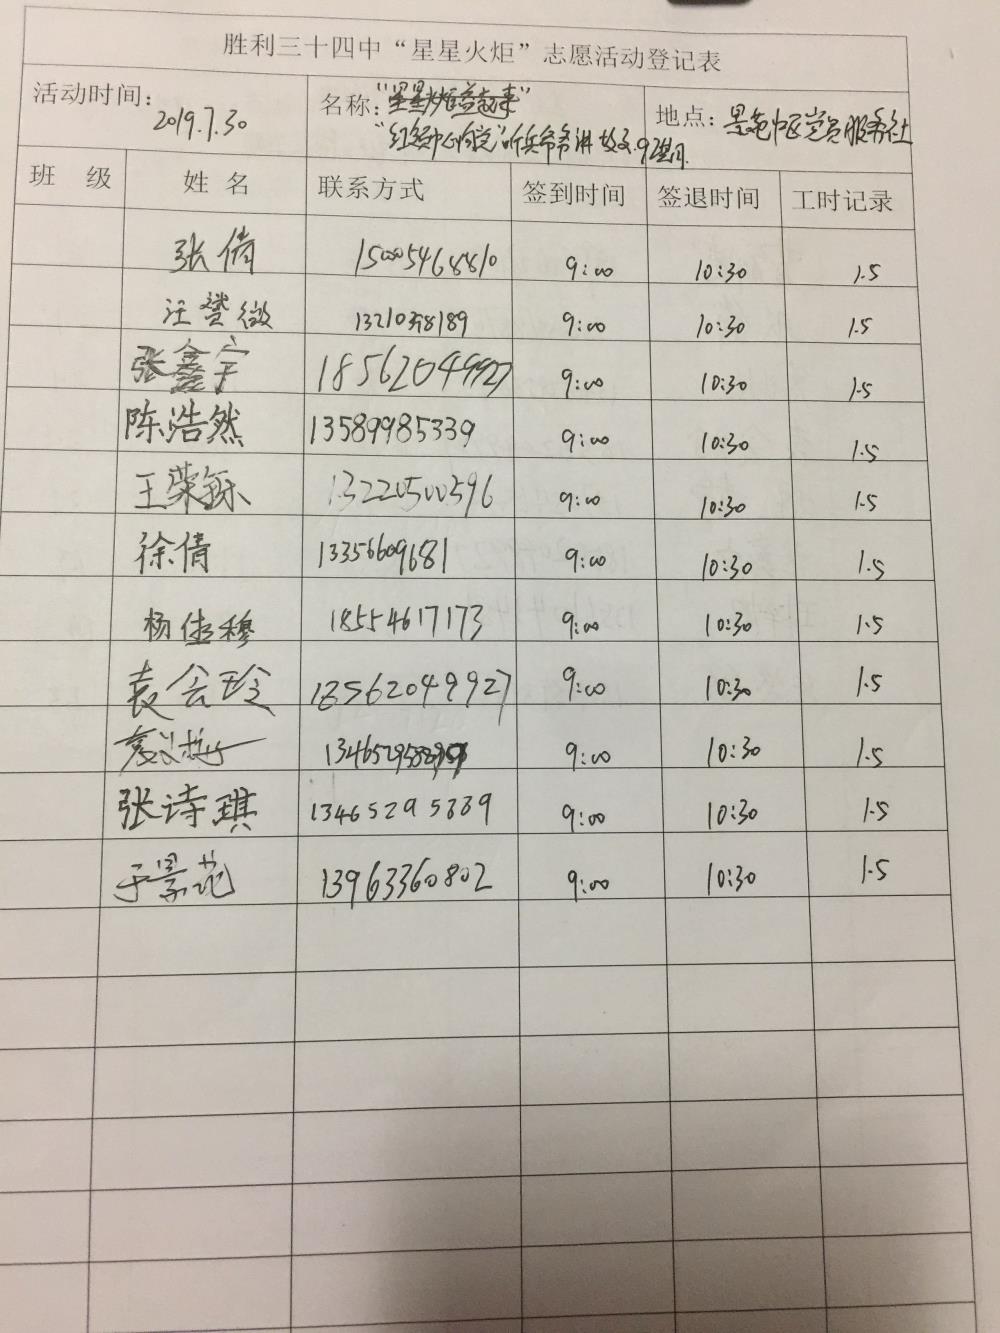 胜利三十四中“星星火炬”志愿活动登记表
活动时间: 2019.7.30 名称: 地点: 景苑中区党员服务社
班 级 姓 名 联系方式 签到时间 签退时间 工时记录
张倩 15005468810 9:00 10:30 1.5
汪赟薇 9:00 10:30 1.5
张鑫宇 18562049927 9:00 10:30 1.5
陈浩然 13589985339 9:00 10:30 1.5
王荣 13220500596 9:00 10:30 1.5
徐倩 13356609681 9:00 10:30 1.5
杨佳穆 18554617173 9:00 10:30 1.5
袁会玲 18562049927 9:00 10:30 1.5
9:00 10:30 1.5
张诗琪 13465295889 9:00 10:30 1.5
于景花 13963360802 9:00 10:30 1.5